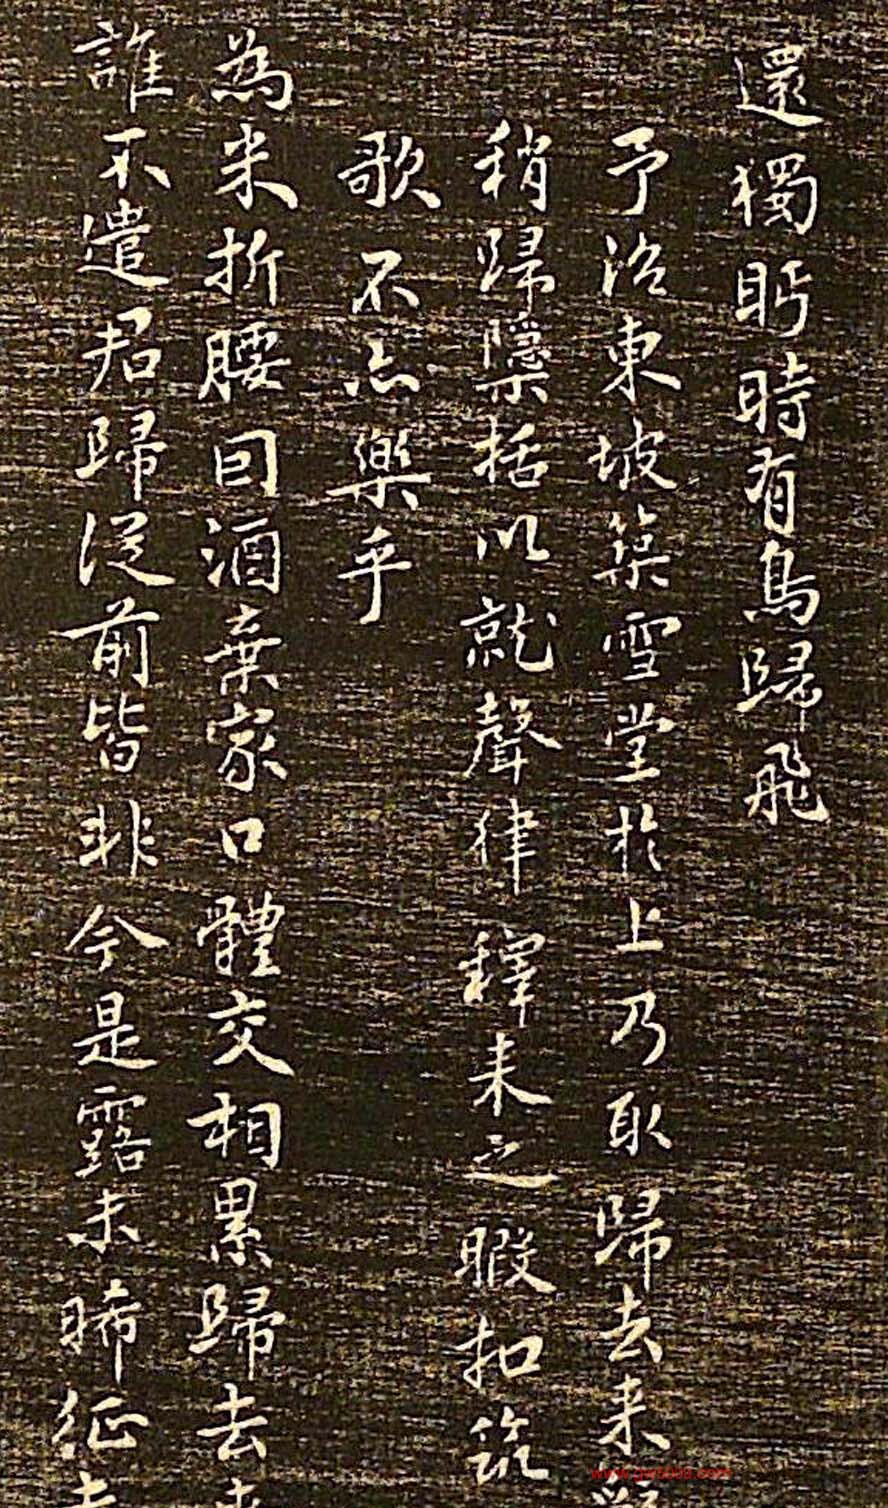 還獨盻時有鳥歸飛
予治東坡築雪堂於上乃取歸去来
稍歸隱栝以就聲律釋耒之暇扣筑
歌不亦樂乎
為米折腰囙酒棄家口體交相累歸去
誰不遣君歸從前皆非今是露未晞征
www.gs5000.com